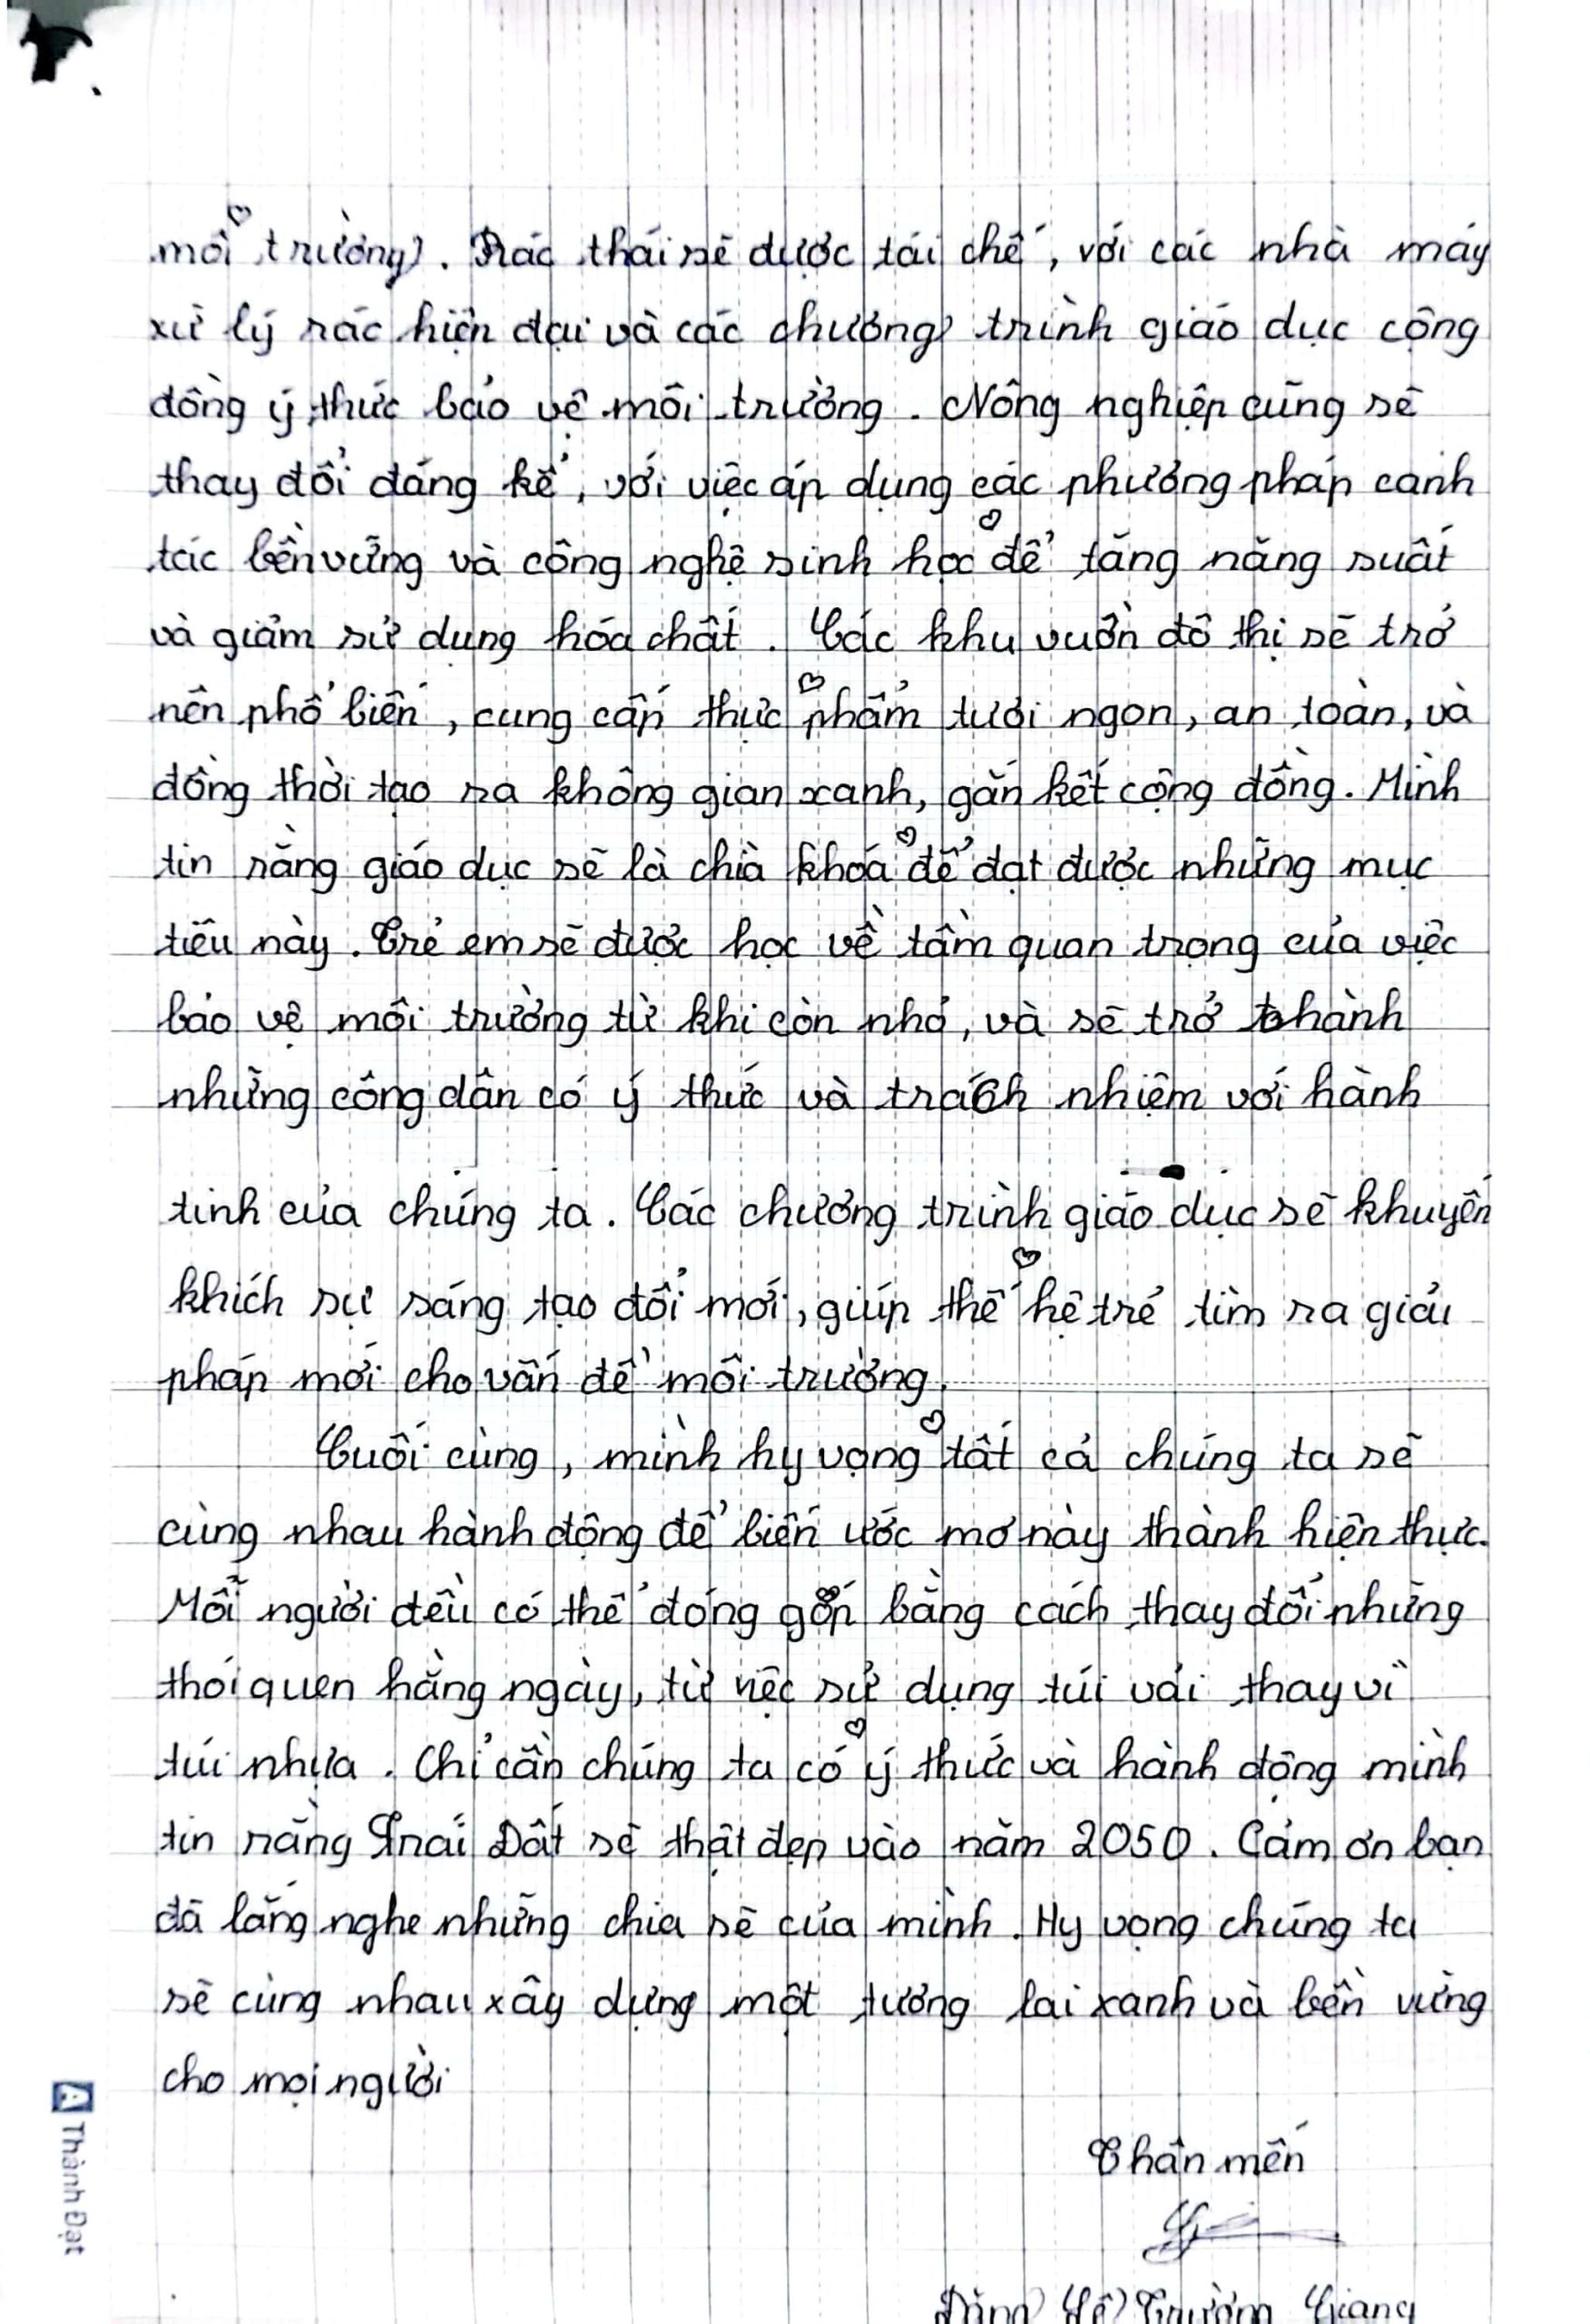 môi trường. Rác thải sẽ được tái chế, với các nhà máy
xử lý rác hiện đại và các chương trình giáo dục cộng
đồng ý thức bảo vệ môi trường. Nông nghiệp cũng sẽ
thay đổi đáng kể, với việc áp dụng các phương pháp canh
tác bền vững và công nghệ sinh học để tăng năng suất
và giảm sử dụng hóa chất. Các khu vườn đô thị sẽ trở
nên phổ biến, cung cấp thực phẩm tươi ngon, an toàn, và
đồng thời tạo ra không gian xanh, gắn kết cộng đồng. Mình
tin rằng giáo dục sẽ là chìa khoá để đạt được những mục
tiêu này. Trẻ em sẽ được học về tầm quan trọng của việc
bảo vệ môi trường từ khi còn nhỏ, và sẽ trở thành
những công dân có ý thức và trách nhiệm với hành
tinh của chúng ta. Các chương trình giáo dục sẽ khuyến
khích sự sáng tạo đổi mới, giúp thế hệ trẻ tìm ra giải
pháp mới cho vấn đề môi trường.
Cuối cùng, mình hy vọng tất cả chúng ta sẽ
cùng nhau hành động để biến ước mơ này thành hiện thực.
Mỗi người đều có thể đóng góp bằng cách thay đổi những
thói quen hằng ngày, từ việc sử dụng túi vải thay vì
túi nhựa. Chỉ cần chúng ta có ý thức và hành động mình
tin rằng Trái Đất sẽ thật đẹp vào năm 2050. Cảm ơn bạn
đã lắng nghe những chia sẽ của mình. Hy vọng chúng ta
sẽ cùng nhau xây dựng một tương lai xanh và bền vững
cho mọi người
Thân mến
Đặng Lê Trường Giang
Thành Đạt